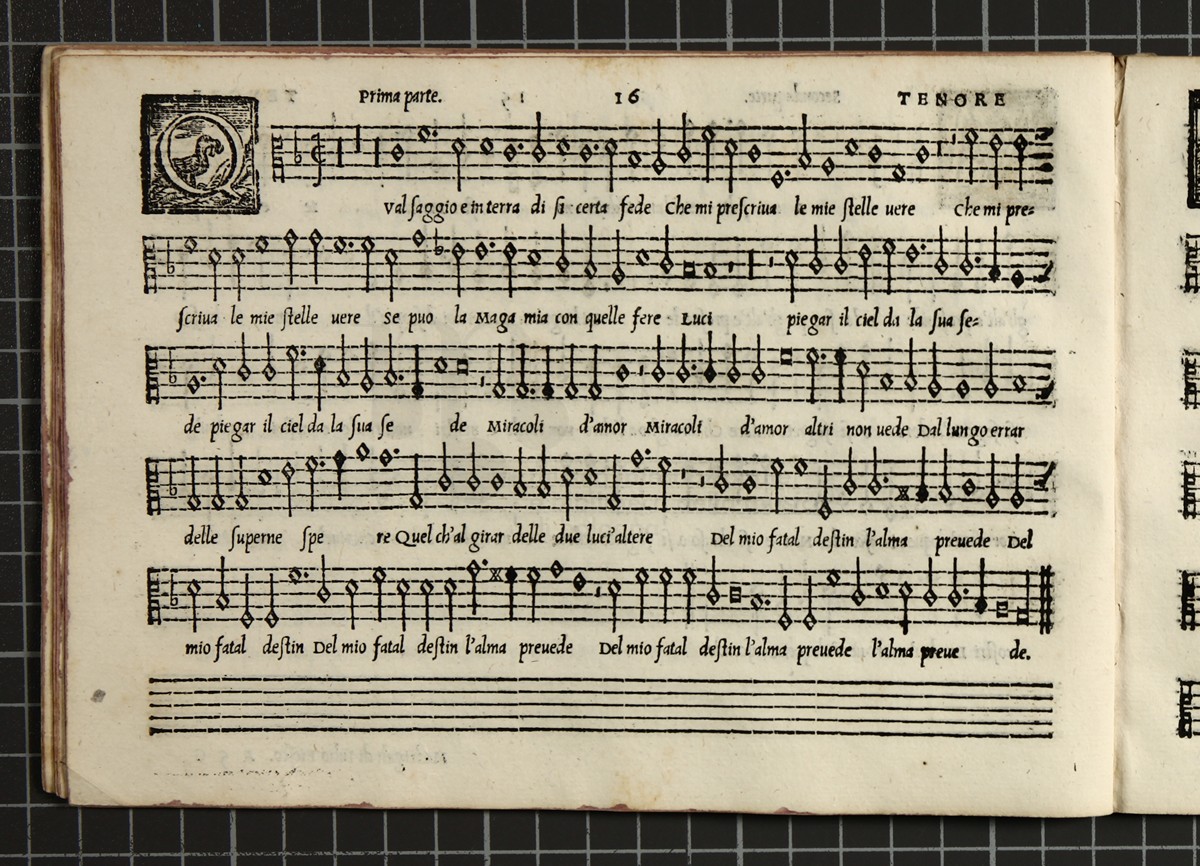 Prima parte. 16 TENORE
QVal saggio e in terra di si certa fede Che mi prescriua le mie stelle uere Che mi pre=
scriua le mie stelle uere Se puo la Maga mia con quelle fere Luci piegar il ciel da la sua se=
de piegar il ciel da la sua se de Miracoli d'amor Miracoli d'amor altri non uede Dal lungo errar
delle superne spe re Quel ch'al girar delle due luci'altere Del mio fatal destin l'alma preuede Del
mio fatal destin Del mio fatal destin l'alma preuede Del mio fatal destin l'alma preuede l'alma preue de.